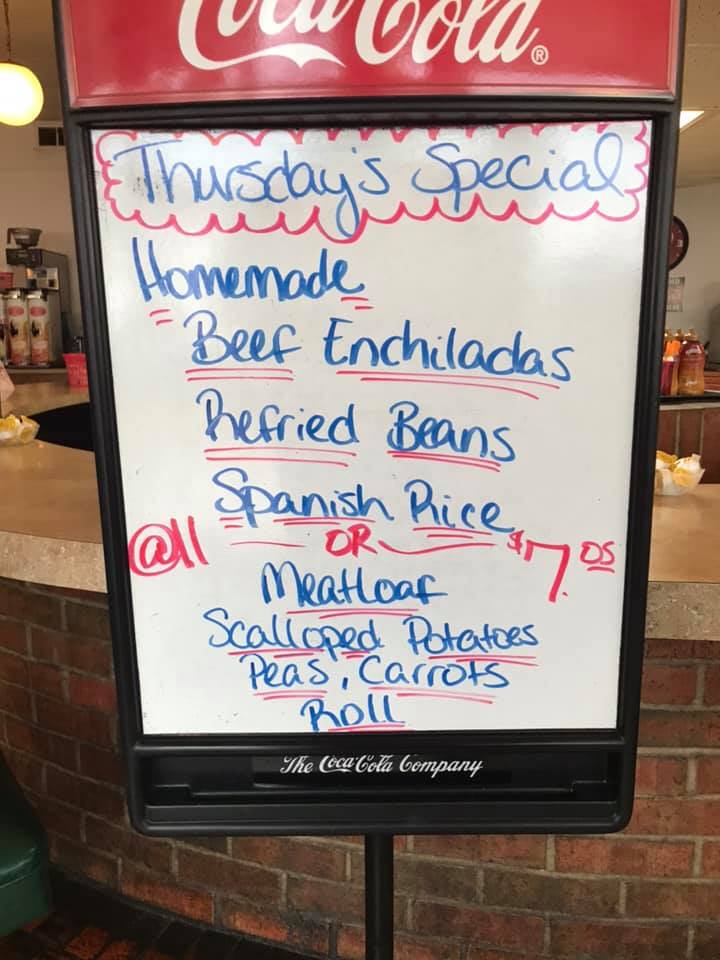 Coca-Cola®
Thursday's Special
Homemade
Beef Enchiladas
Refried Beans
Spanish Rice
@11 OR $7.05
Meatloaf
Scalloped Potatoes
Peas, Carrots
Roll
The Coca-Cola Company